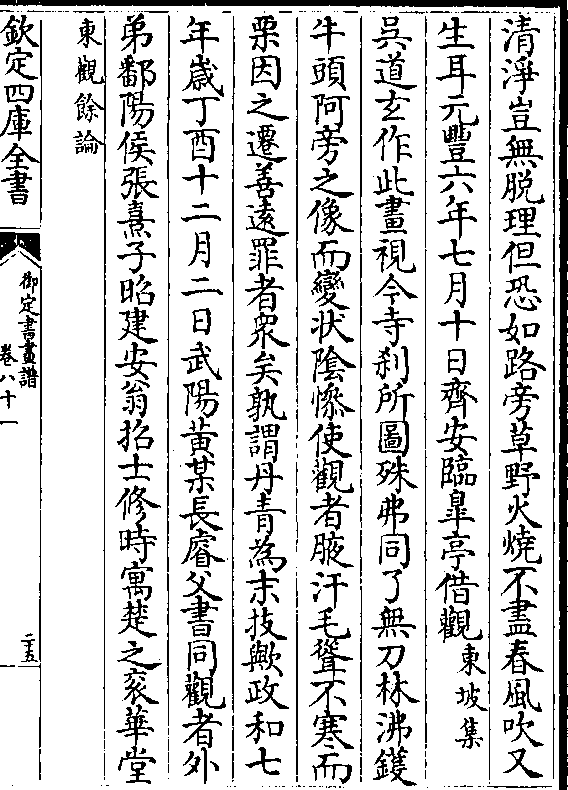 清淨豈無脱理但恐如路旁草野火燒不盡春風吹又
生耳元豐六年七月十日齊安臨臯亭借觀東坡集
呉道𤣥作此畫視今寺刹所圖殊弗同了無刀林沸鑊
牛頭阿旁之像而變狀陰慘使觀者腋汗毛聳不寒而
栗因之遷善逺罪者衆矣孰謂丹青為末技歟政和七
年歲丁酉十二月二日武陽黃某長睿父書同觀者外
弟鄱陽侯張熹子昭建安翁招士修時寓楚之衮華堂
東觀餘論
欽定四庫全書
御定書畫譜
卷八十一
二五